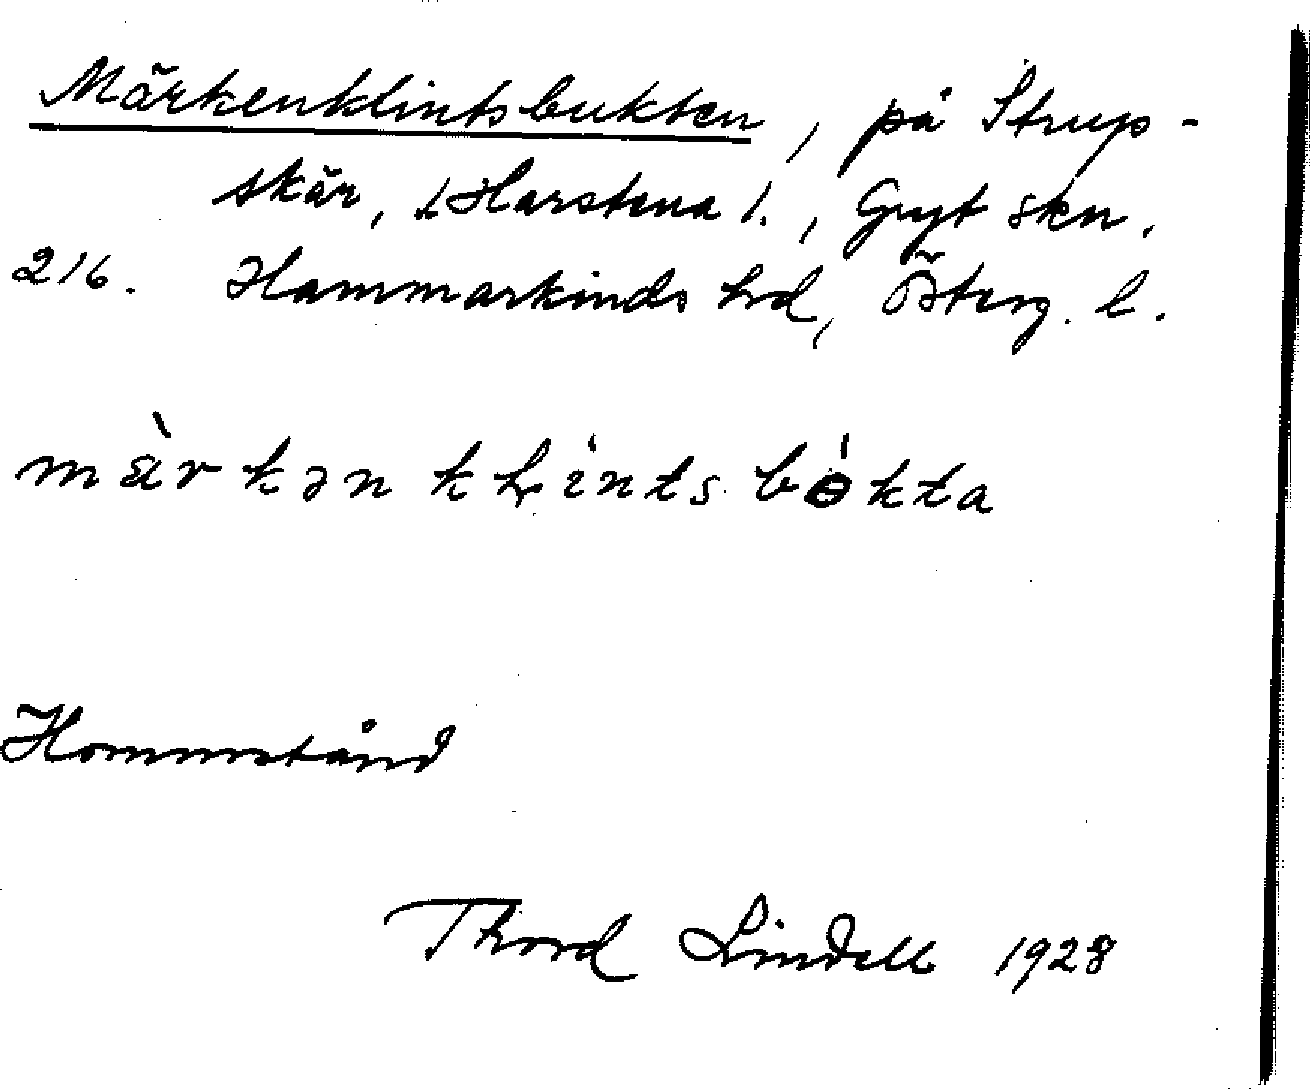 Märkenklintsbukten, på Strup-
skär, t Harstena 1., Gryt skn.
216. Hammarkinds hd, Österg. l.
mär kən kḷints bökta
Thord Lindell 1928